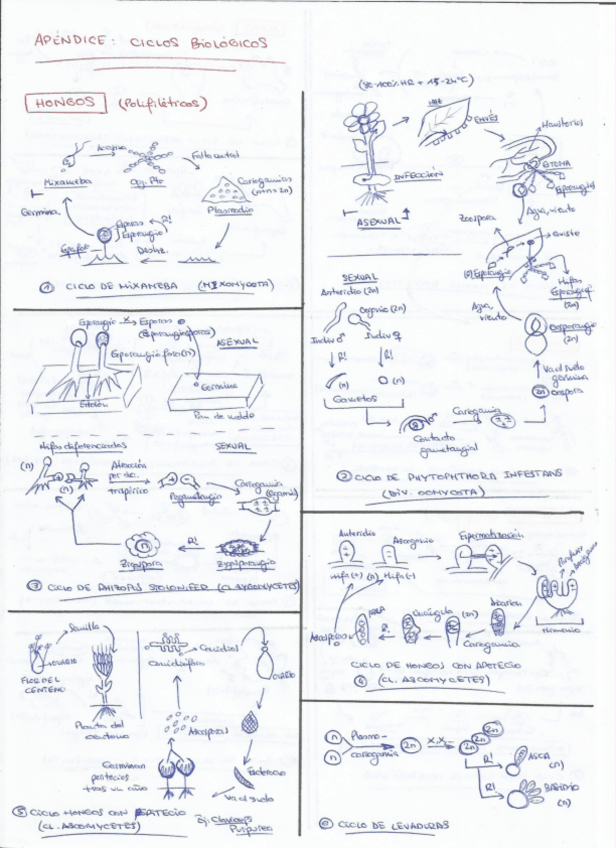 APÉNDICE: CICLOS BIOLÓGICOS
HONGOS (Polifiléticos)
Mixameba
Falta control
Cariogamias
(n+n>2n)
Plasmodio
Germina
Esporas
R!
Esporangio
① CICLO DE MIXAMEBA (MIXOMYCOTA)
(90-100% HR + 15-24ºC)
ENVÉS
Haustorios
INFECCIÓN
ESTOMA
Esporangio
Agua, viento
ASEXUAL
Zoospora
SEXUAL
Anteridio (2n)
Oogonio (2n)
Indiv ♂
Indiv ♀
R!
R!
(n)
(n)
Gametos
Agua,
viento
Hifas
(2n)
(2n)
Va al suelo
germina
2n oospora
Contacto
gametangial
Cariogamia
② CICLO DE PHYTOPHTHORA INFESTANS
(DIV. OOMYCOTA)
Esporangio
Esporas
(Esporangiosporas)
ASEXUAL
Esporangioforo (n)
Germina
Estolón
Pan de molde
Hifas diferenciadas
SEXUAL
(n)
(n)
Atracción
por
trópico
Progametangio
Cariogamia
R!
n
Zigospora
Zigosporangio
③ CICLO DE RHIZOPUS STOLONIFER (CL. ZYGOMYCETES)
Anteridio
Ascogonio
Espermatización
Hifa (+)
(n)
Hifa (-)
Himenio
Ascosporas
R!
(2n)
Cariogamia
CICLO DE HONGOS CON APOTECIO
④ (CL. ASCOMYCETES)
Semilla
OVARIO
FLOR DEL
CENTENO
Planta del
centeno
Conidios
Conidióforo
OVARIO
Ascosporas
Germinan
peritecios
tras un año
Esclerocio
Va al suelo
⑤ CICLO HONGOS CON PERITECIO
(CL. ASCOMYCETES)
Ej: Claviceps
Purpurea
n
n
Plasmo-
cariogamia
2n
2n
2n
2n
R!
ASCA
(n)
R!
BASIDIO
(n)
⑥ CICLO DE LEVADURAS